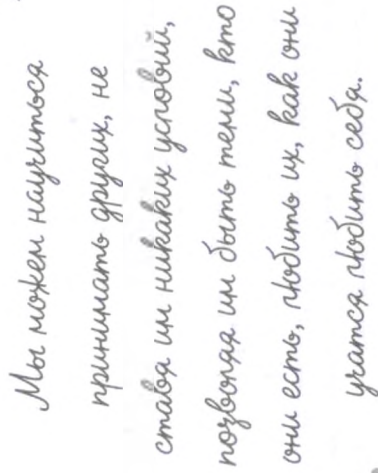 Мы можем научиться
принимать других, не
ставя им никаких условий,
позволяя им быть теми, кто
они есть, любить их, как они
учатся любить себя.